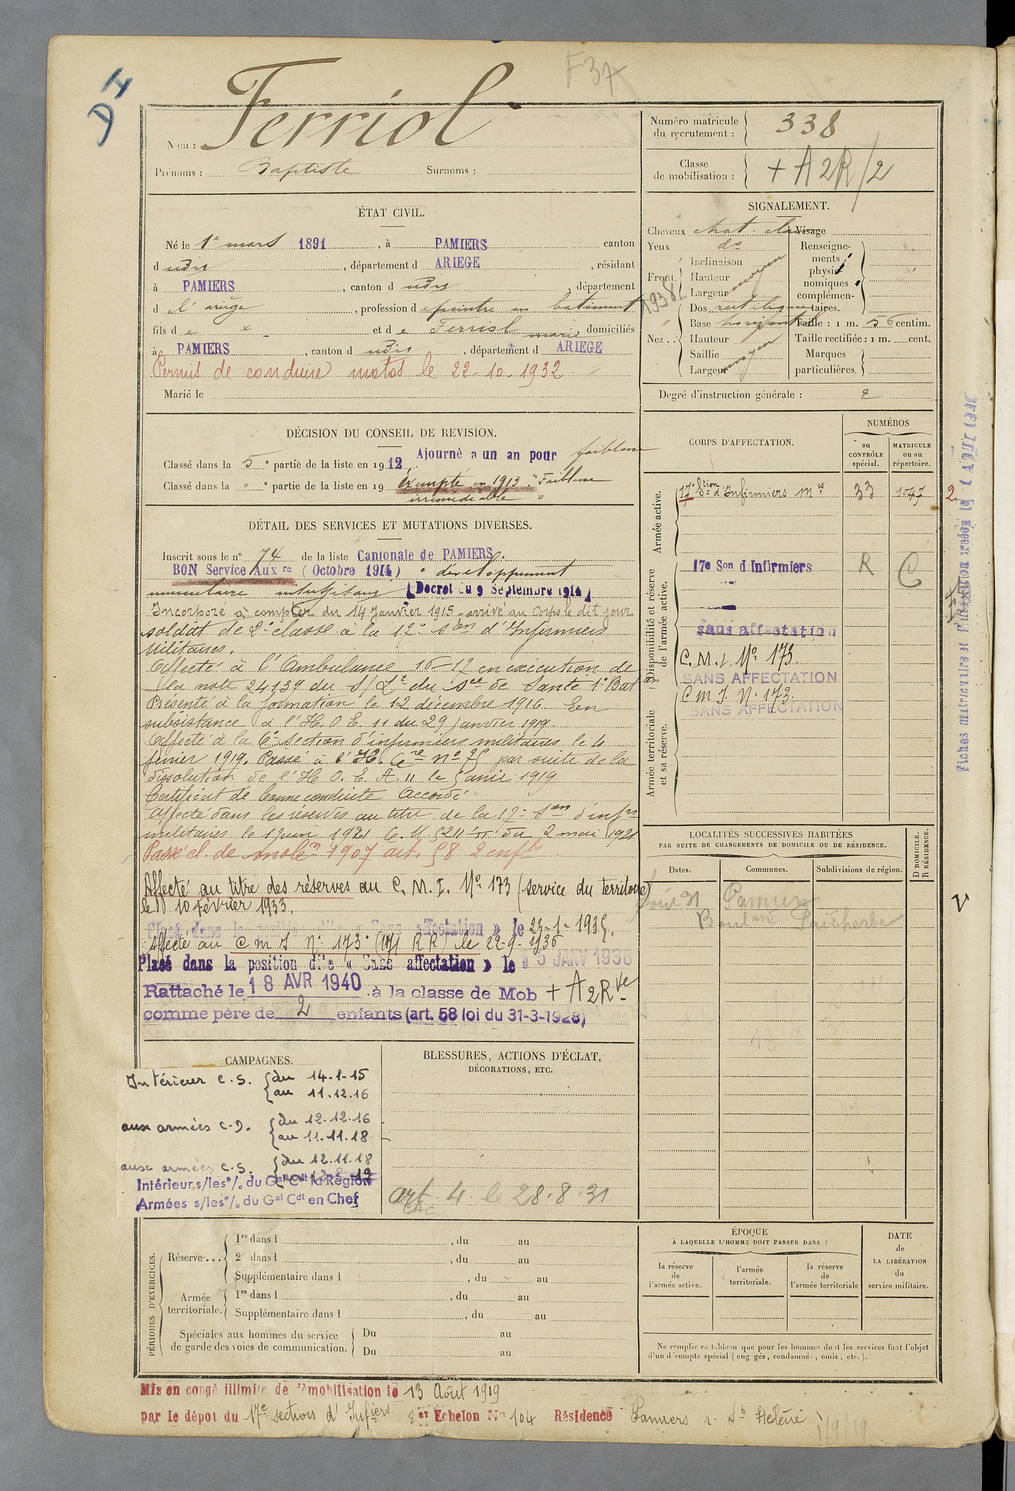 DH
F 37
Nom : Ferriol
Prénoms : Baptiste Surnoms :
ÉTAT CIVIL.
Né le 1er mars 1891, à PAMIERS canton
d udis, département d ARIEGE, résidant
à PAMIERS, canton d udis, département
d e l'ariège, profession d peintre en batiment
fils d e x et d e Ferriol marie, domiciliés
à PAMIERS, canton d udis, département d ARIEGE
Permis de conduire motos le 22-10-1932
Marié le
DÉCISION DU CONSEIL DE REVISION.
Classé dans la 5e partie de la liste en 1912 Ajourné a un an pour faiblesse
Classé dans la " e partie de la liste en 19 Exempté en 1913 : Faiblesse
irrémédiable
DÉTAIL DES SERVICES ET MUTATIONS DIVERSES.
Inscrit sous le n° 74 de la liste Cantonale de PAMIERS.
BON Service Auxre (Octobre 1914) développement
musculaire insuffisant (Decret du 9 Septembre 1914)
Incorporé à compter du 14 Janvier 1915 - arrivé au corps le dit jour
soldat de 2e classe à la 17e Son d'Infirmiers
Militaires.
Affecté à l'Ambulance 16-17 en exécution de
la note 24139 du S/Lt du Sce de Santé 1er Bat
Présenté à la formation le 12 décembre 1916. En
subsistance à l'H.O.E. 11 du 29 janvier 1919.
Affecté à la 6e section d'infirmiers militaires le 4
février 1919. Passé à l'H. Cre n° 75 par suite de la
dissolution de l'H.O.E. A. 11 le 5 avril 1919
Certificat de bonne conduite Accordé
Affecté dans les réserves au titre de la 17e Son d'infrs
militaires le 1 juin 1921 C. M. du 2 mai 1921
Passé cl. de mobon 1907 art. 58 2 enfts
Affecté au titre des réserves au C. M. I. N° 173 (service du territoire)
le 10 Février 1933.
Placé dans la position dite « Sans affectation » le 27-1-1935.
Affecté au C M I N° 173 (RR) le 22-9-1936
Placé dans la position dite « Sans affectation » le 15 JANV 1938
Rattaché le 18 AVR 1940 à la classe de Mob + A2R ve
comme père de 2 enfants (art. 58 loi du 31-3-1928)
CAMPAGNES.
Intérieur c.s. {du 14-1-15
{au 11.12.16
aux armées c.d. {du 12-12-16
{au 11.11.18
aux armées c.s. {du 12.11.18
Intérieur s/les %. du Gal Cdt la Région
Armées s/les %. du Gal Cdt en Chef
BLESSURES, ACTIONS D'ÉCLAT,
DÉCORATIONS, ETC.
art 4. le 28-8-31
PÉRIODES D'EXERCICES.
Réserve ...
1re dans l , du au
2e dans l , du au
Supplémentaire dans l , du au
Armée territoriale.
1re dans l , du au
Supplémentaire dans l , du au
Spéciales aux hommes du service
de garde des voies de communication.
Du au
Du au
Mis en congé illimité de démobilisation le 13 Août 1919
par le dépot du 17e section d'Infiers 8er Echelon No 104 Résidence Pamiers r. Ste Hélène
Numéro matricule
du recrutement : 338
Classe
de mobilisation : + A 2R/2
SIGNALEMENT.
Cheveux chat. clair Visage
Yeux do
Front. Inclinaison
Hauteur moyen
Largeur
1938
Nez .. Dos rectiligne
Base horizontale
Hauteur
Saillie moyen
Largeur
Renseigne-
ments
physio-
nomiques
complémen-
taires.
Taille : 1 m. 56 centim.
Taille rectifiée : 1 m. cent.
Marques
particulières.
Degré d'instruction générale : 2
CORPS D'AFFECTATION.
NUMÉROS
au
CONTRÔLE
spécial.
MATRICULE
ou au
répertoire.
Armée active.
17e Section d'Infirmiers mres 33 1047 2
Disponibilité et réserve
de l'armée active.
17e Son d Infirmiers R C
sans affectation
C. M. I. N° 173.
SANS AFFECTATION
C M I N° 173
SANS AFFECTATION
Armée territoriale
et sa réserve.
LOCALITÉS SUCCESSIVES HABITÉES
PAR SUITE DE CHANGEMENTS DE DOMICILE OU DE RÉSIDENCE.
Dates. Communes. Subdivisions de région.
D DOMICILE.
R RÉSIDENCE.
Août 31 Pamiers
V
ÉPOQUE
À LAQUELLE L'HOMME DOIT PASSER DANS :
la réserve
de
l'armée active.
l'armée
territoriale.
la réserve
de
l'armée territoriale
DATE
de
LA LIBÉRATION
du
service militaire.
Ne remplir ce tableau que pour les hommes dont les services font l'objet
d'un décompte spécial (engagés, condamnés, omis, etc.).